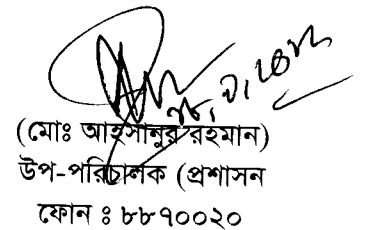 (মোঃ আহসানুর রহমান)
উপ-পরিচালক (প্রশাসন
ফোন ঃ ৮৮৭০০২০